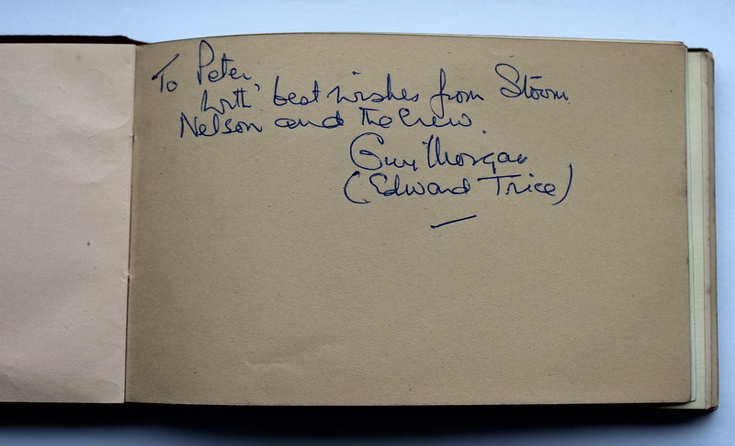 To Peter,
with best wishes from Storm
Nelson and the Crew.
Guy Morgan
(Edward Trice)